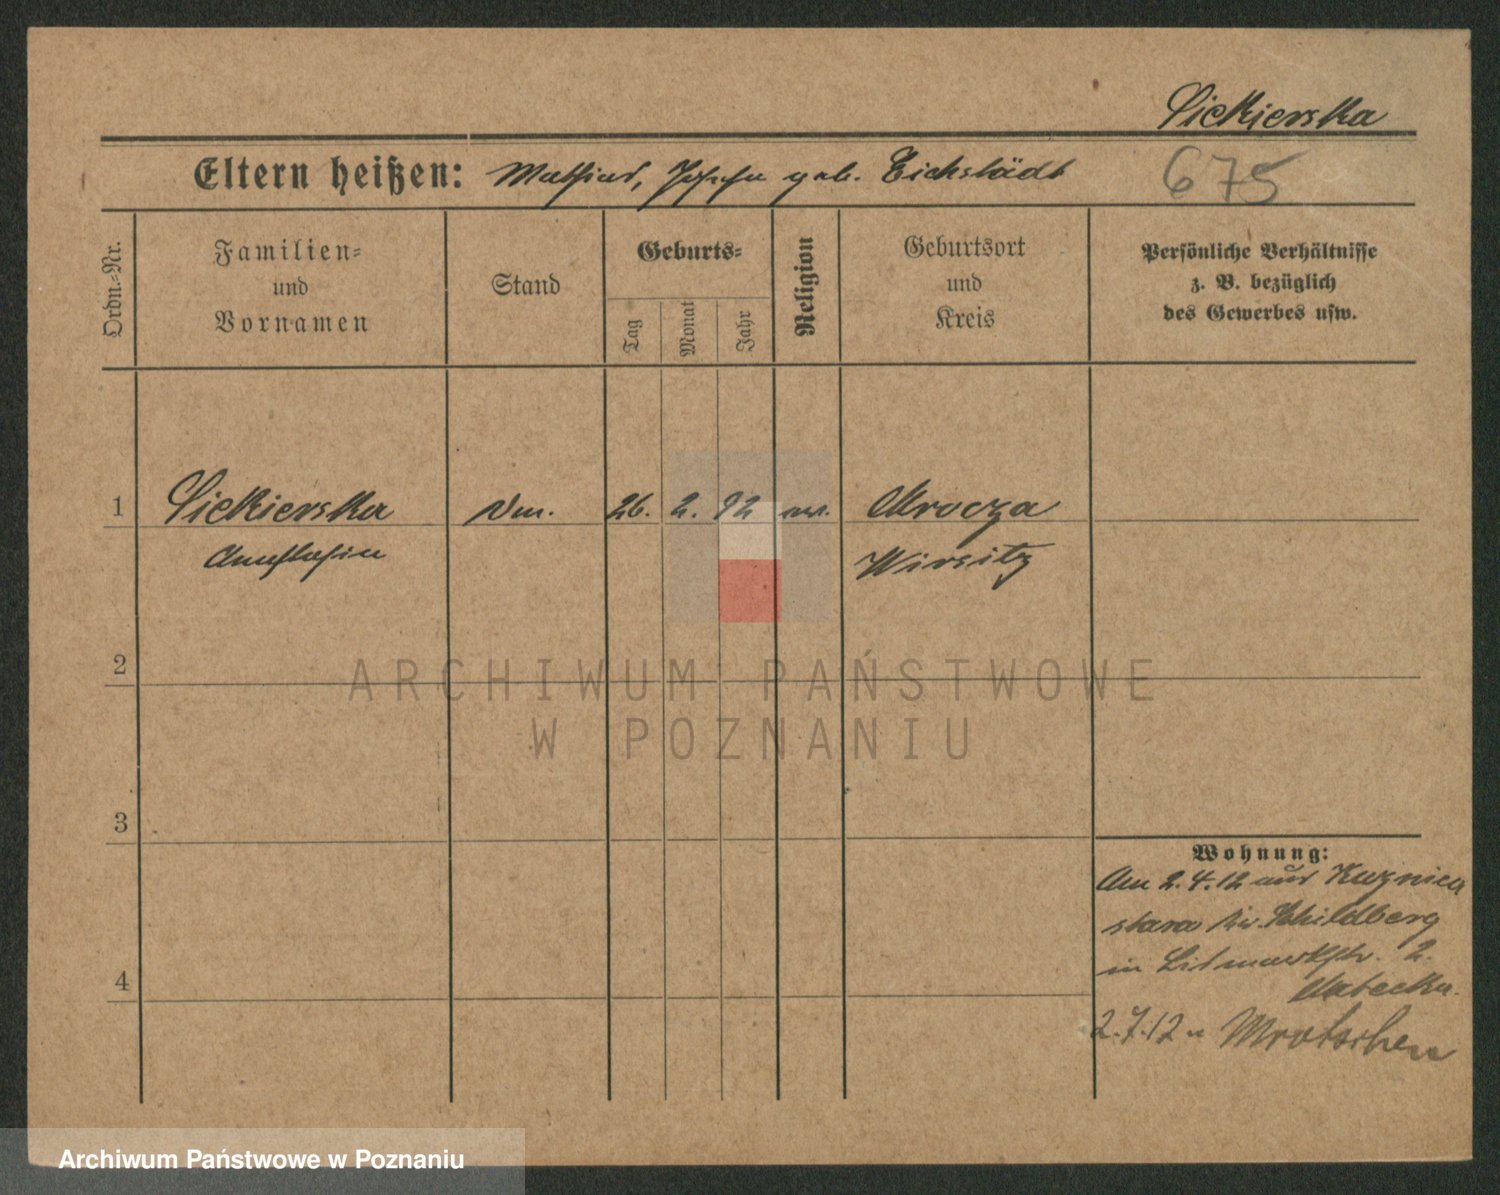 Siekierska
Eltern heißen: Mathias, Josefa geb. Eichstädt
675
Ordn.-Nr.
Familien-
und
Vornamen
Stand
Geburts-
Tag
Monat
Jahr
Religion
Geburtsort
und
Kreis
Persönliche Verhältnisse
z. B. bezüglich
des Gewerbes usw.
1 Siekierska 26. 2. 92 Mrocza
Anastasia Wirsitz
2
3
4
Wohnung:
Am 2.4.12 aus Kuznica
stara Kr. Schildberg
in 2.
2.7.12 n Mrotschen
ARCHIWUM PAŃSTWOWE
W POZNANIU
Archiwum Państwowe w Poznaniu